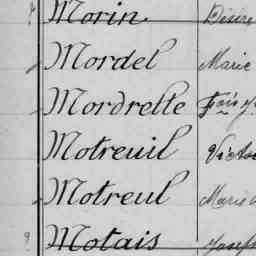 Morin Désiré
Mordel Marie
Mordrelle
Motreuil Victo
Motreul Marie
Motais Josep